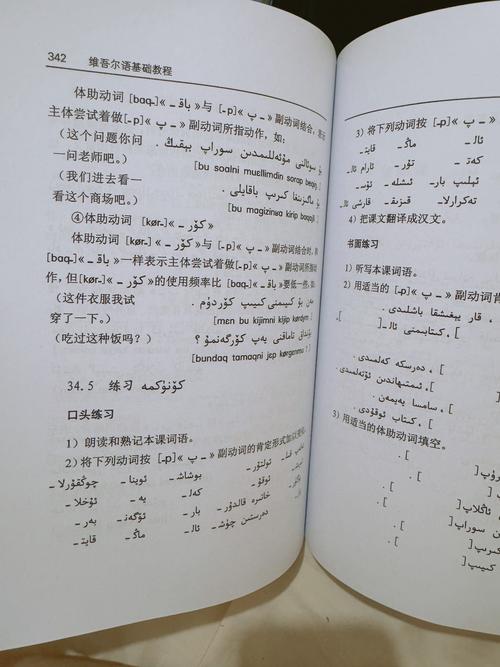 342 维吾尔语基础教程
体助动词 [baq-]« باق ـ »与 [-p]« ـ پ »副动词结合,表示
主体尝试着做[-p]« ـ پ »副动词所指动作,如:
(这个问题你问 بۇ سوئالنى مۇئەللىمدىن سوراپ بېقىڭ.
一问老师吧。) [bu soalni muɛllimdin sorap beqiŋ]
(我们进去看一 بۇ ماگىزىنغا كىرىپ باقايلى.
看这个商场吧。) [bu magizinʁa kirip baqayli]
④体助动词 [kør-]« كۆر ـ »
体助动词 [kør-]« كۆر ـ »与 [-p]« ـ پ »副动词结合时,和
[baq-]« باق ـ »一样表示主体尝试着做[-p]« ـ پ »副动词所指动
作,但[kør-]« كۆر ـ »的使用频率比 [baq-]« باق ـ »要低一些,如:
(这件衣服我试 مەن بۇ كىيىمنى كىيىپ كۆردۈم.
穿了一下。) [mɛn bu kijimni kijip kørdym]
(吃过这种饭吗?) بۇنداق تاماقنى يەپ كۆرگەنمۇ؟
[bundaq tamaqni jɛp kørgɛnmu]
34.5 练习 كۆنۈكمە
口头练习
1) 朗读和熟记本课词语。
2) 将下列动词按 [-p]« ـ پ »副动词的肯定形式加以变化。
چوڭقۇرلا ـ ئوينا ـ بوشاش ـ تولتۇر ـ
ئۇخلا ـ يە ـ كەل ـ ئوقۇ ـ
بەر ـ ئۆگەن ـ بار ـ خاتىرە قالدۇر ـ
قايت ـ ماڭ ـ ئال ـ دەرستىن چۈش ـ
3) 将下列动词按 [-p]« ـ پ »
قايت ـ ماڭ ـ ئال ـ
ئارام ئال ـ تۇر ـ كەت ـ
ئۇ ـ ئىشلە ـ ئېلىپ بار ـ
قارشى ئال ـ قىزىق ـ تەكرارلا ـ
4) 把课文翻译成汉文。
书面练习
1) 听写本课词语。
2) 用适当的 [-p]« ـ پ »副动词肯
، قار يېغىشقا باشلىدى.
، كىتابىمنى ئال ـ [
، دەرسكە كەلمىدى.
، ئىمتىھاندىن ئۆتەلمىدى. [
، سامسا يەيمەن. [
، كىتاب ئوقۇدى. [
3) 用适当的体助动词填空。
ئاڭلاپ[ ].
سوراپ[ ].
كىرىپ[ ].
كىيىپ[ ].